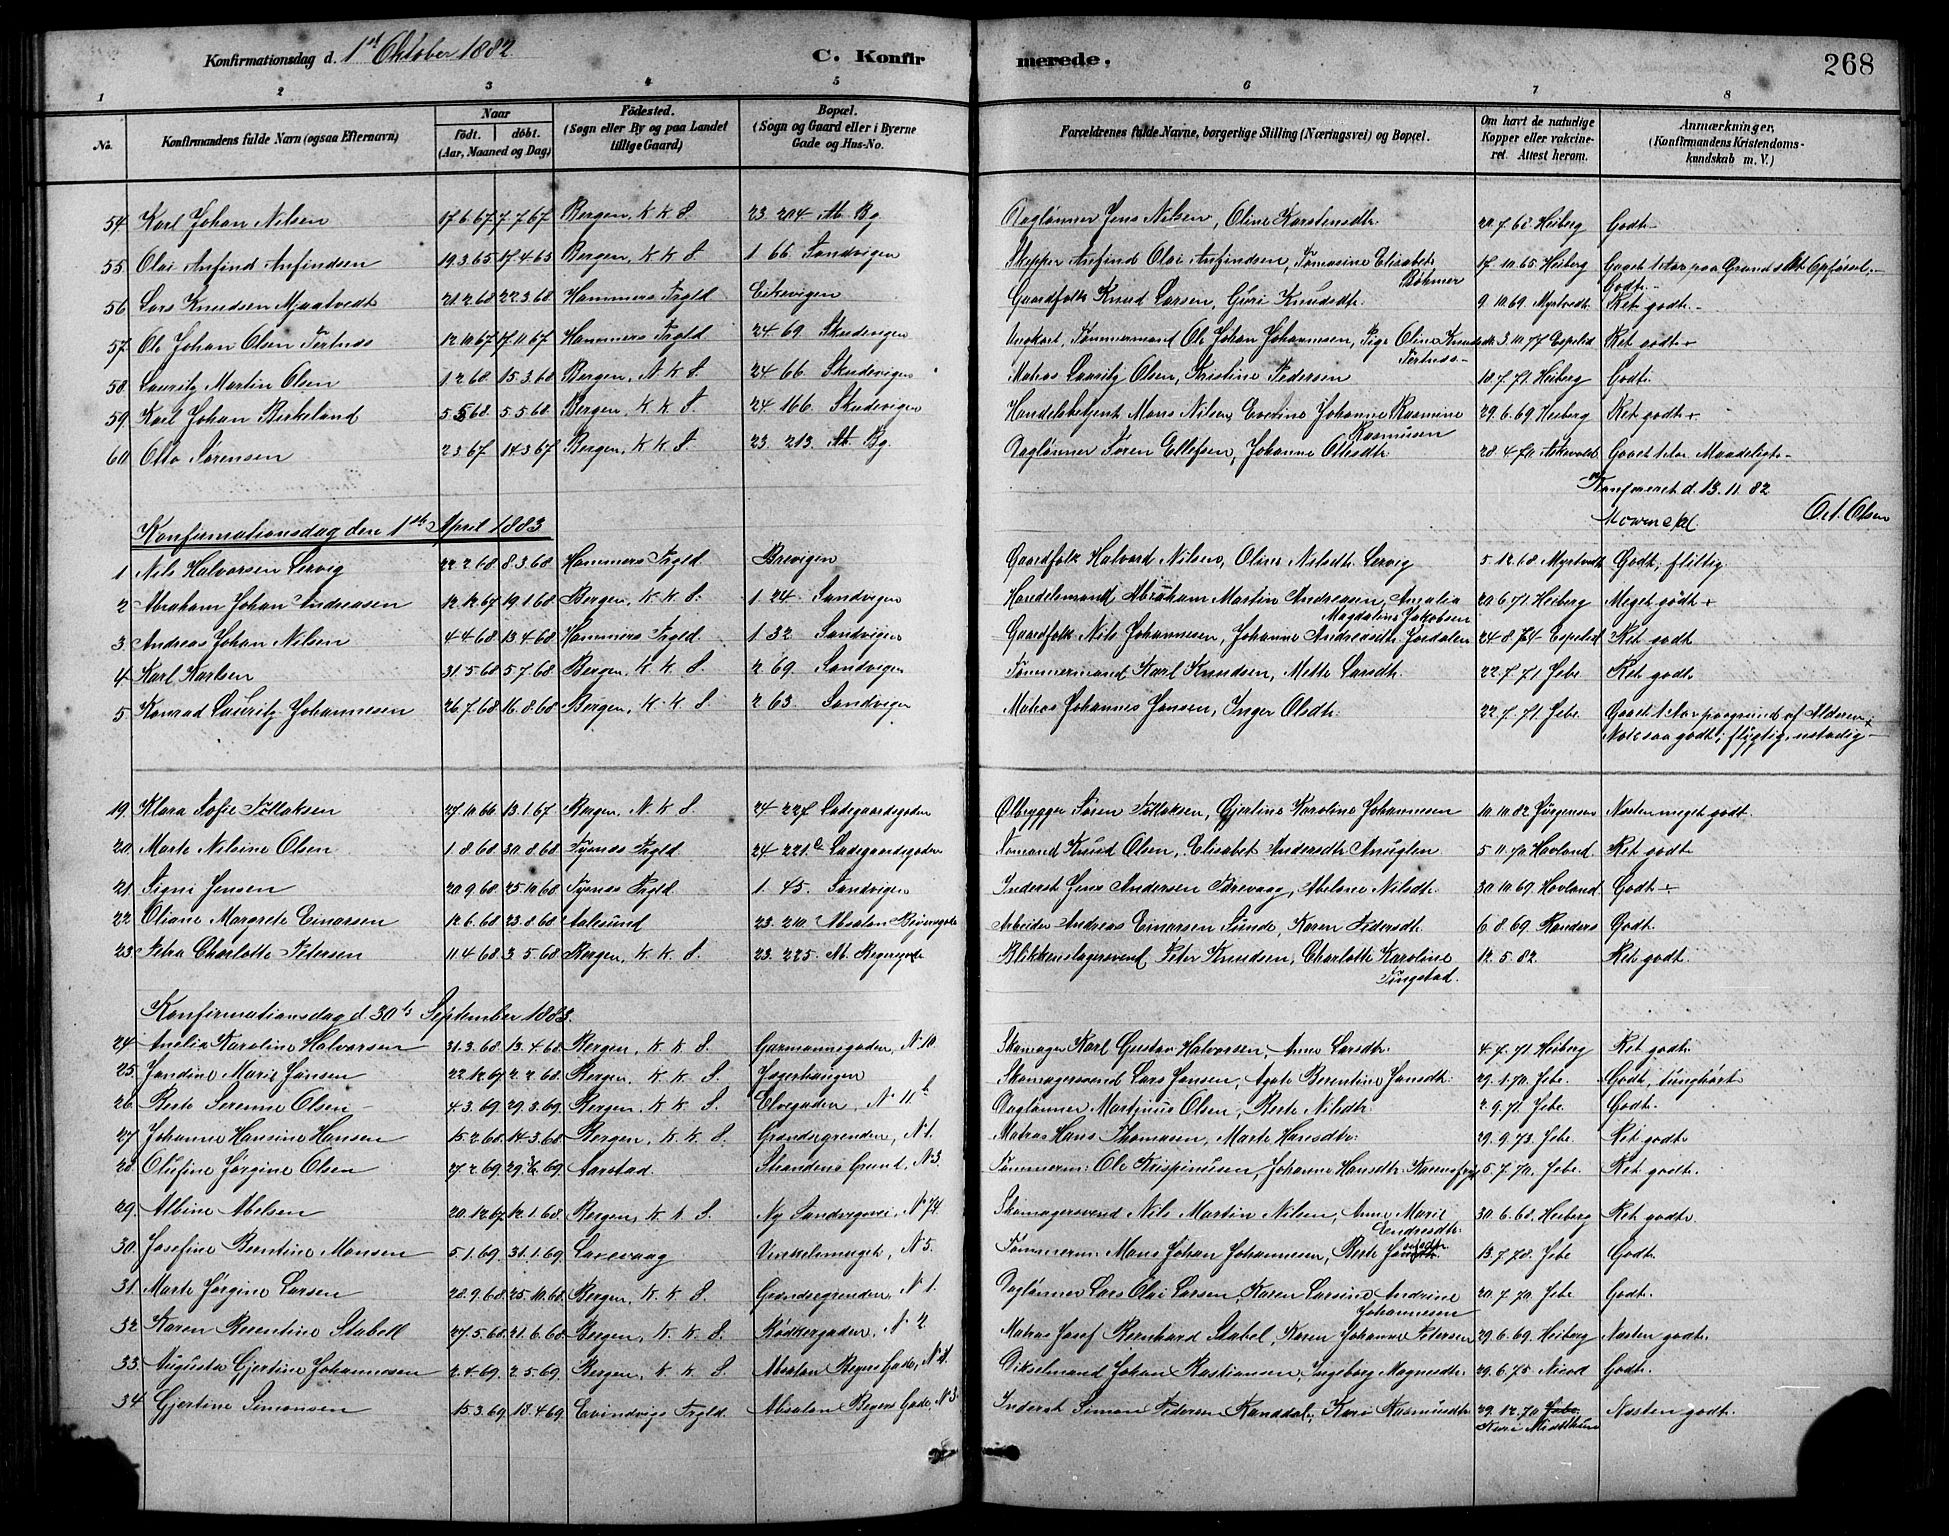 Konfirmationsdag d. 1st Oktober 1882
C. Konfirmerede.
268
1 2 3 4 5 6 7 8
No. Konfirmandens fulde Navn (ogsaa Efternavn) Naar födt. döbt. (Aar, Maaned og Dag) Födested. (Sogn eller By og paa Landet tillige Gaard) Bopæl. (Sogn og Gaard eller i Byerne Gade og Hus-No. Forældrenes fulde Navne, borgerlige Stilling (Næringsvei) og Bopæl. Om havt de naturlige Kopper eller vakcineret. Attest herom. Anmærkninger, (Konfirmandens Kristendomskundskab m. V.)
54 Karl Johan Nilsen 17.6.67 7.7.67 Bergen, K K S 23. 204 St. Bg Daglønner Jens Nilsen, Oline Karstensdtr. Heiberg Godt
55. Olai Anfind Anfindsen 19.3.65 17.4.65 Bergen, K K S 1 66 Sandvigen Skipper Anfind Olai Anfindsen, Tomasine Elisabet Böhmer 17.10.65 Heiberg Gaaet 1 Aar paa Grund slet Opførsel. Godt.
56. Lars Knudsen Mjaatvedt 21.2.68 22.3.68 Hammers Prgld Eikevigen Gaardfolk Knud Larsen, Guri Knudsdtr. 9.10.69 Myrtvedt Ret godt.
57. Ole Johan Olsen Tertnes 12.10.67 17.11.67 Hammers Prgld. 24 69. Skudevigen Ungkarl, Tømmermand Ole Johan Johannesen, Pige Oline Knudsdtr. Tertnes 3.10.77 Espelid Ret godt
58. Lauritz Martin Olsen 1.2.68. 15.3.68 Bergen, N K S 24 66. Skudevigen Matros Lauritz Olsen, Kristine Pedersen 18.7.71. Heiberg Godt.
59. Karl Johan Birkeland 5 5 68 5.5.68 Bergen, K K S 24 166. Skudevigen Handelsbetjent Mons Nilsen, Everine Johanne Rasmine Rasmusen 29.6.69 Heiberg Ret godt
60 Otto Sørensen 2.3.67 14.3.67 Bergen, K K S 23. 213. St. Bg. Daglønner Søren Ellefsen, Johanne Ottesdtr 28.4.70. Askevold. Gaaet 1 Aar. Maadeligt
Konfereret d. 13.11.82
Mowinckel O.A. Olsen
Konfirmationsdag den 1ste April 1883
1 Nils Halvorsen Lervig 22.2.68 8.3.68 Hammers Prgld. Brevigen Gaardfolk Halvard Nilsen, Oline Nilsdtr. Lervig 5.12.68 Myrtvedt Godt, flittig
2 Abraham Johan Andreasen 12.12.67 19.1.68 Bergen, K K S. 1 24 Sandvigen Handelsmand Abraham Martin Andreasen, Amalia Magdaline Jakobsen 20.6.71. Heiberg Meget godt
3. Andreas Johan Nilsen 4.4.68 13.4.68 Hammers Prgld. 1 32 Sandvigen Gaardfolk Nils Johannesen, Johanne Andreasdtr. Jordalen 24.8.74 Espelid Ret godt
4 Karl Karlsen 31.5.68 5.7.68 Bergen, K K S. 2 69. Sandvigen Tømmermand Karl Knudsen, Mette Larsdtr. 22.7.71. Jebe. Ret godt.
5 Konrad Lauritz Johannesen 26.7.68 16.8.68 Bergen, K K S 2 63. Sandvigen Matros Johannes Jansen, Inger Olsdtr. 22.7.71. Jebe. Gaaet 1 Aar paagrund af Alderen. Noksaa godt; flygtig, ustadig
19. Klara Sofie Tollaksen 27.10.66 13.1.67 Bergen, N K S 24 227 Ladegaardsgaden Ølbrygger Søren Tollaksen, Gjertine Karoline Johannesen 10.10.82 Jürgensen Næsten meget godt.
20. Marte Nilsine Olsen 1.8.68 30.8.68 Tysnes Prgld. 24 221c Ladegaardsgaden Sømand Knud Olsen, Elisabet Andersdtr. Anuglen 5.11.70 Hovland. Ret godt
21. Signi Jensen 20.9.68 25.10.68 Tysnes Prgld. 1. 45. Sandvigen Inderst Jens Andersen Færevaag, Abelone Nilsdtr. 30.10.69 Hovland Godt
22. Oliane Margrete Einarsen 12.6.68 23.8.68 Aalesund 23. 210. Absalon Beiersgade Arbeider Andreas Einarsen Sunde, Karen Pedersdtr. 6.8.69 Randers Godt.
23. Petra Charlotte Petersen 11.4.68 3.5.68 Bergen, K. K. S. 23. 225. Ab. Beyersgade Blikkenslagersvend Peter Knudsen, Charlotte Karoline Tingstad. 12.5.82. Ret godt.
Konfirmationsdag d. 30te September 1883.
24 Anelia Karoline Halvorsen 31.3.68 13.4.68 Bergen, K K S. Garmannsgaden, N 10. Skomager Karl Gustav Halvorsen, Anne Larsdtr. 4.7.71 Heiberg Ret godt.
25. Jandine Marie Jansen 22.12.67 2.2.68 Bergen, K. K S. Jægerhaugen Skomagersvend Lars Jansen, Agate Berentine Jansdtr. 29.1.70. Jebe. Godt, tunghørt
26. Berte Serenne Olsen 4.3.69 29.3.69 Bergen, K K S. Elvegaden, N 11b Daglønner Martinus Olsen, Berte Nilsdtr. 2.9.71. Jebe. Godt.
27. Johanne Hansine Hansen 15.2.68 14.3.68 Bergen, K. K S. Grøndregrenden, N 1. Matros Hans Thomasen, Marte Hansdtr. 29.9.73. Jebe. Ret godt
28. Olufine Jørgine Olsen 27.2.69 Aarstad. Strandens Grund, N 3. Tømmerm: Ole Krispinusen, Johanne Hansdtr. 5.7.70. Jebe. Ret godt.
29. Albine Abelsen 20.12.67 12.1.68. Bergen, K K S. Ny Sandvigsvei, N 74 Skomagersvend Nils Martin Nilsen, Anne Marie Endresdtr. 30.6.68. Heiberg Ret godt.
30. Josefine Berntine Monsen 5.1.69 31.1.69. Laxevaag Vinkelsmuget, N 5. Tømmerm: Mons Johan Johannesen, Berte 13.7.78. Jebe Godt.
31. Marte Jørgine Larsen 28.9.68 25.10.68. Bergen, K. K S. Grøndregrenden, N 1. Daglønner Lars Olai Larsen, Karen Larsine Andrine Johannesen 20.7.70. Jebe Godt.
32 Karen Berentine Stabell 27.5.68 21.6.68 Bergen, K. K S. Bødkergaden, N 2 Matros Josef Bernhard Stabel, Karen Johanne Petersen 29.6.69. Heiberg Næsten godt.
33. Augusta Gjertine Johannesen 2.4.69. 2.5.69. Bergen, K K S Absalon Beyers Gade, Dikselmand Johan Bastiansen, Ingeborg Magnesdtr. 29.6.75 Nicod Godt.
34 Gjertine Simonsen 15.3.69 18.4.69 Evindvigs Prgld. Absalon Beyers Gade, N 3. Inderst Simon Pedersen Randdal, Kari Rasmusdtr. 29.12.70 Jebe. Kari Midtthun Næsten godt.